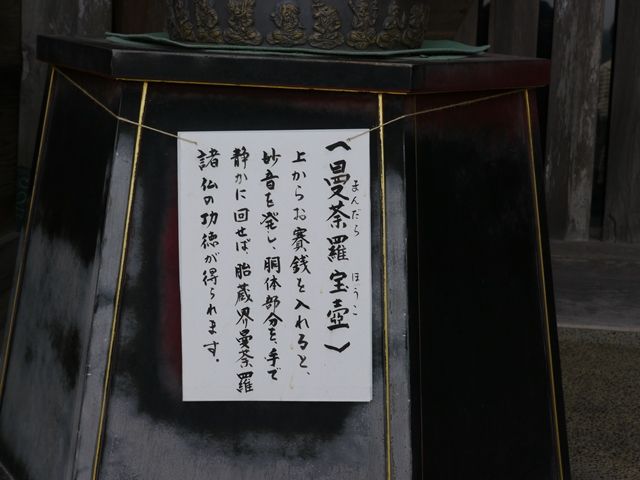 〈曼荼羅宝壺〉
まんだら
ほうこ
上からお賽銭を入れると、
妙音を発し、胴体部分を、手で
静かに回せば、胎蔵界曼荼羅
諸仏の功徳が得られます。